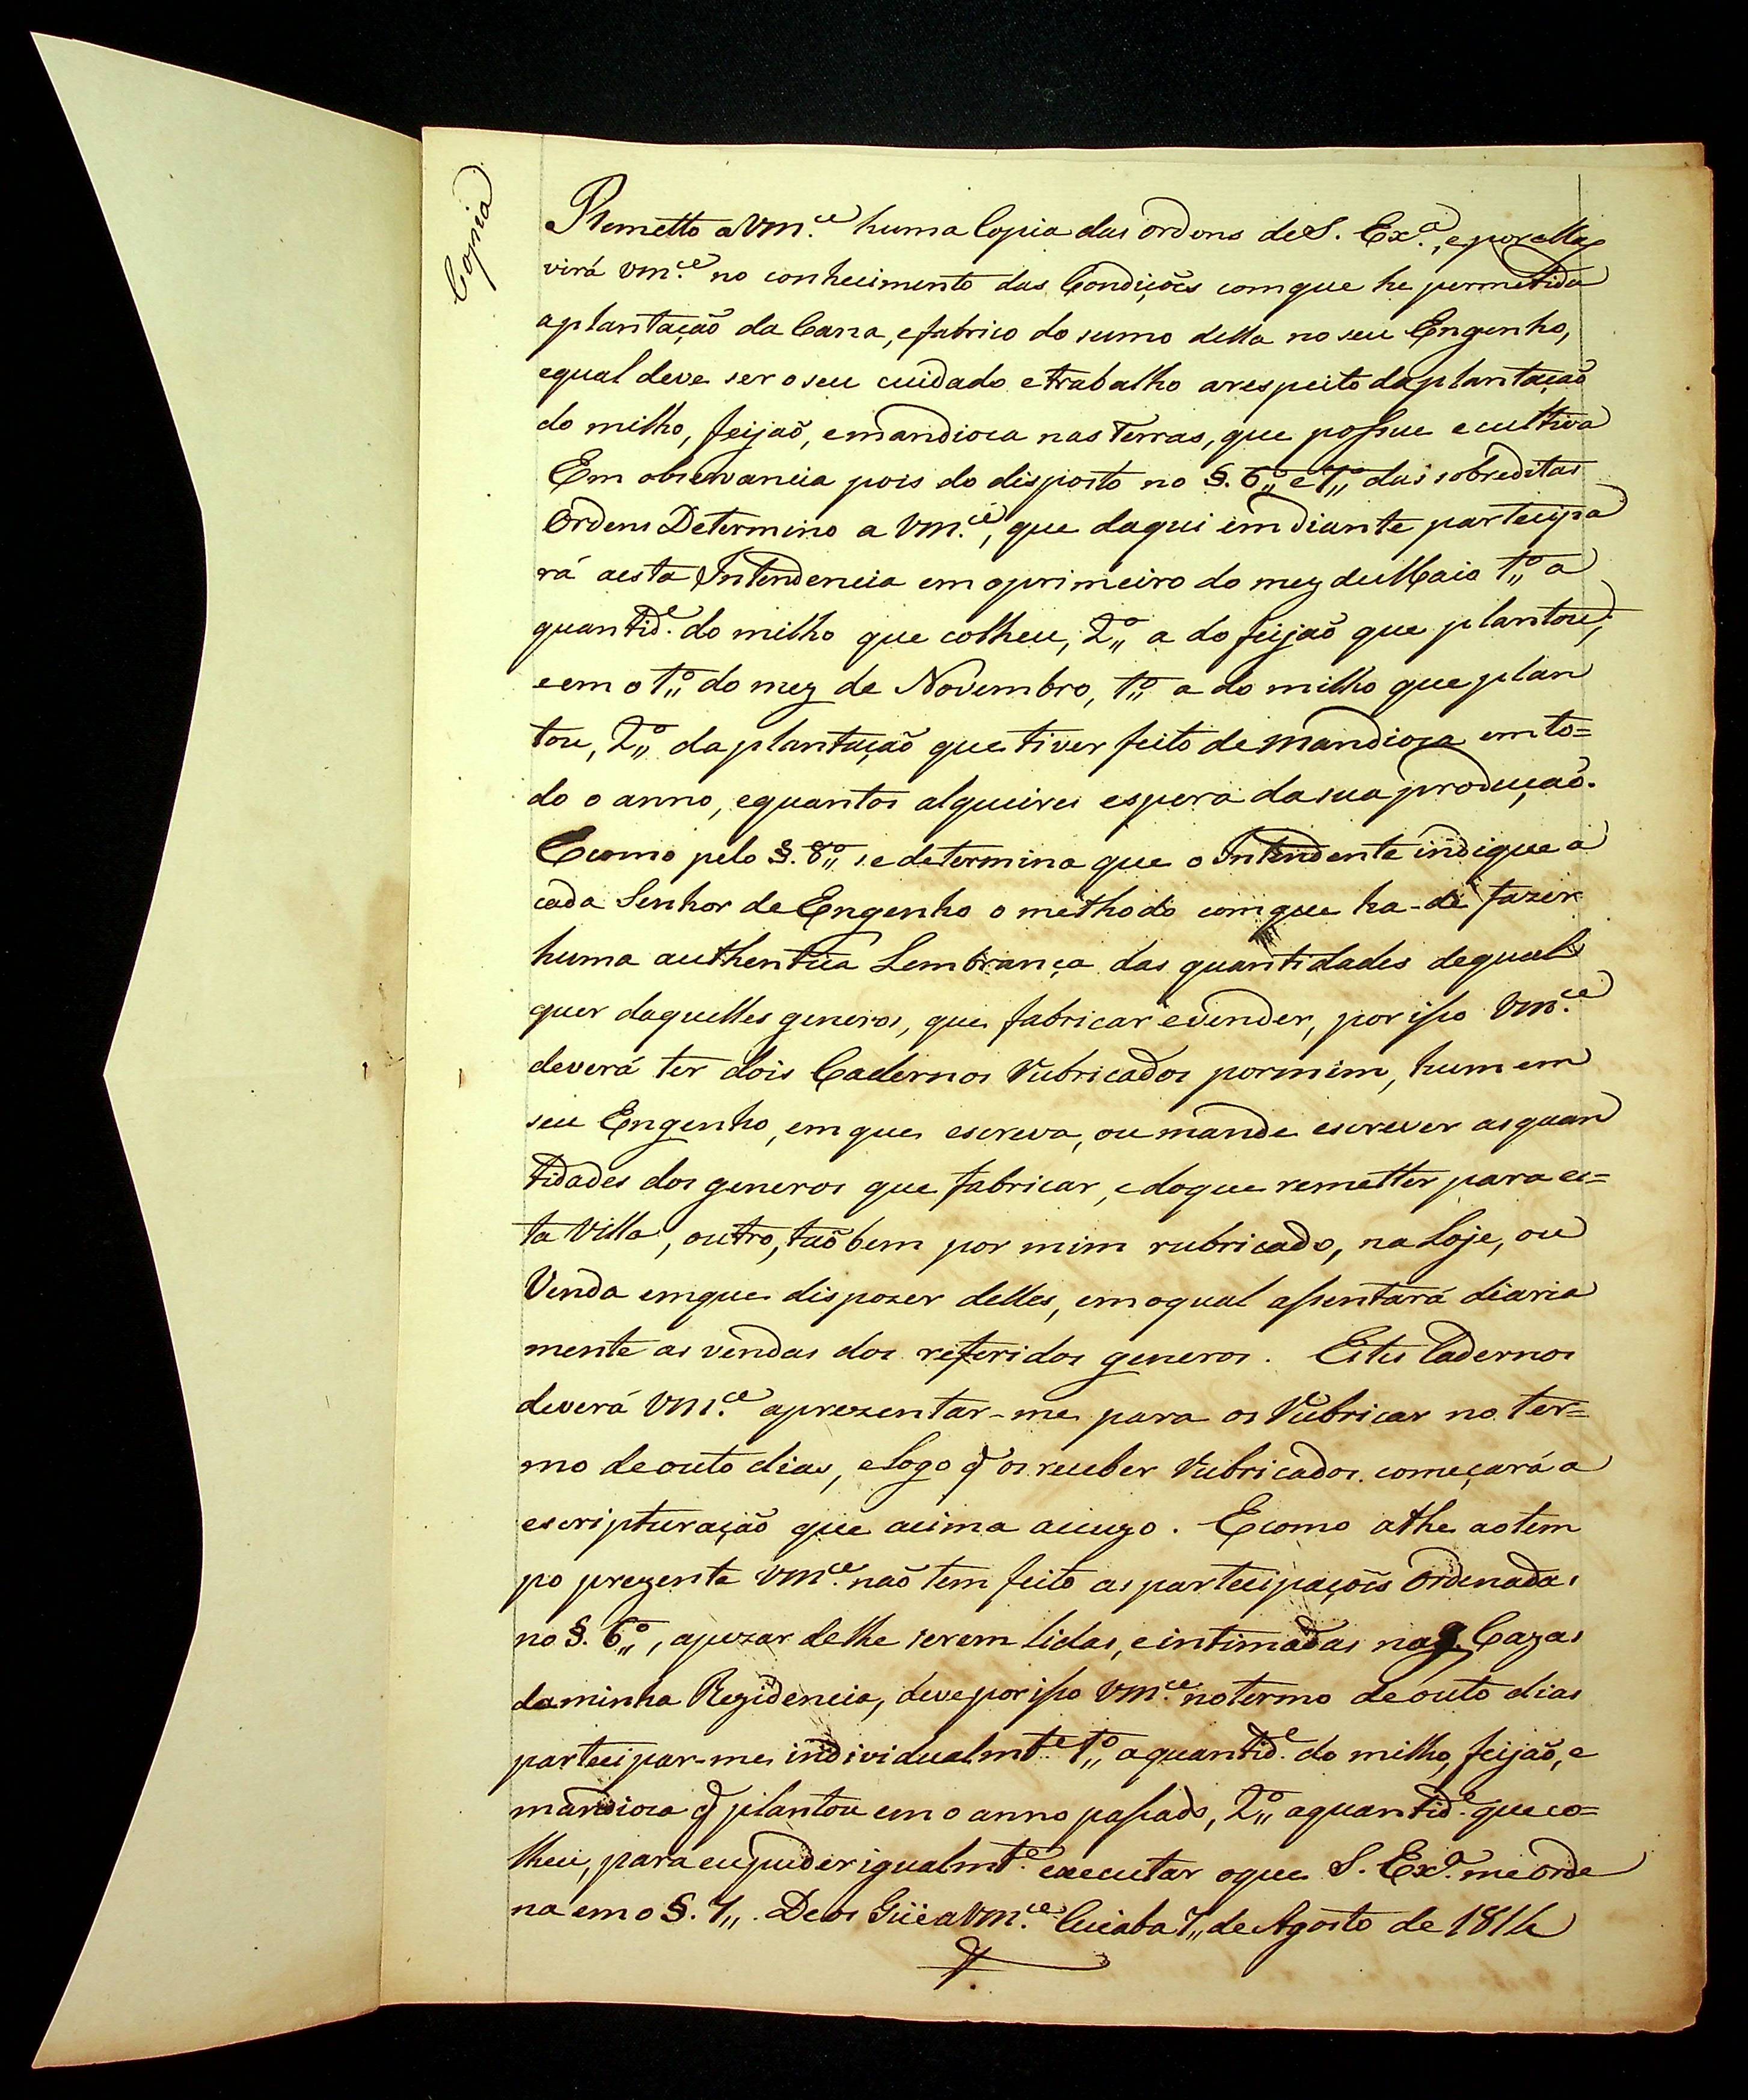 Copia
Remetto a Vm.ce huma Copia das ordens de S. Ex.a, e por ellas
virá vm.ce no conhecimento das Condiçoẽs com que he permetida
a plantação da Cana, e fabrico do sumo della no seu Engenho,
e qual deve ser o seu cuidado e trabalho a respeito da plantação
do milho, feijaõ, e mandioca nas terras, que possue e cultiva
Em observancia pois do disposto no §. 6.º e 7.º das sobreditas
Ordens Determino a Vm.ce, que daqui em diante partecipa
rá a esta Intendencia em o primeiro do mez de Maio 1.º a
quantid.e do milho que colheu, 2.º a do feijaõ que plantou;
e em o 1.º do mez de Novembro, 1.º a do milho que plan
tou, 2.º da plantação que tiver feito de mandioca em to=
do o anno, e quantos alqueires espera da sua produçaõ.
E como pelo §. 8.º se determina que o Intendente indique a
cada Senhor de Engenho o methodo com que ha-de fazer
huma authentica Lembrança das quantidades de qual
quer daquelles generos, que fabricar e vender, por isso Vm.ce
deverá ter dois Cadernos Rubricados por mim, hum em
seu Engenho, em que escreva, ou mande escrever as quan
tidades dos generos que fabricar, e do que remetter para es=
ta Villa, outro, taõ bem por mim rubricado, na Loje, ou
Venda em que dispozer delles, em o qual assentará diaria
mente as vendas dos referidos generos. Estes Cadernos
deverá Vm.ce aprezentar-me para os Rubricar no ter=
mo de outo dias, e logo q̃ os receber Rubricados começará a
escripturação que acima accuzo. E como athe ao tem
po prezente vm.ce naõ tem feito as partecipaçoẽs Ordenadas
no §. 6.º, apezar de lhe serem lidas, e intimadas nas Cazas
da minha Rezidencia, deve por isso Vm.ce no termo de outo dias
partecipar-me individualmt.e 1.º a quantid.e do milho, feijaõ, e
mandioca q̃ plantou em o anno passado, 2.º a quantid.e que co=
lheu, para eu puder igualmt.e executar o que S. Ex.a me orde
na em o §. 7,,. Deos G.üe a Vm.ce Cuiaba 7,, de Agosto de 1814